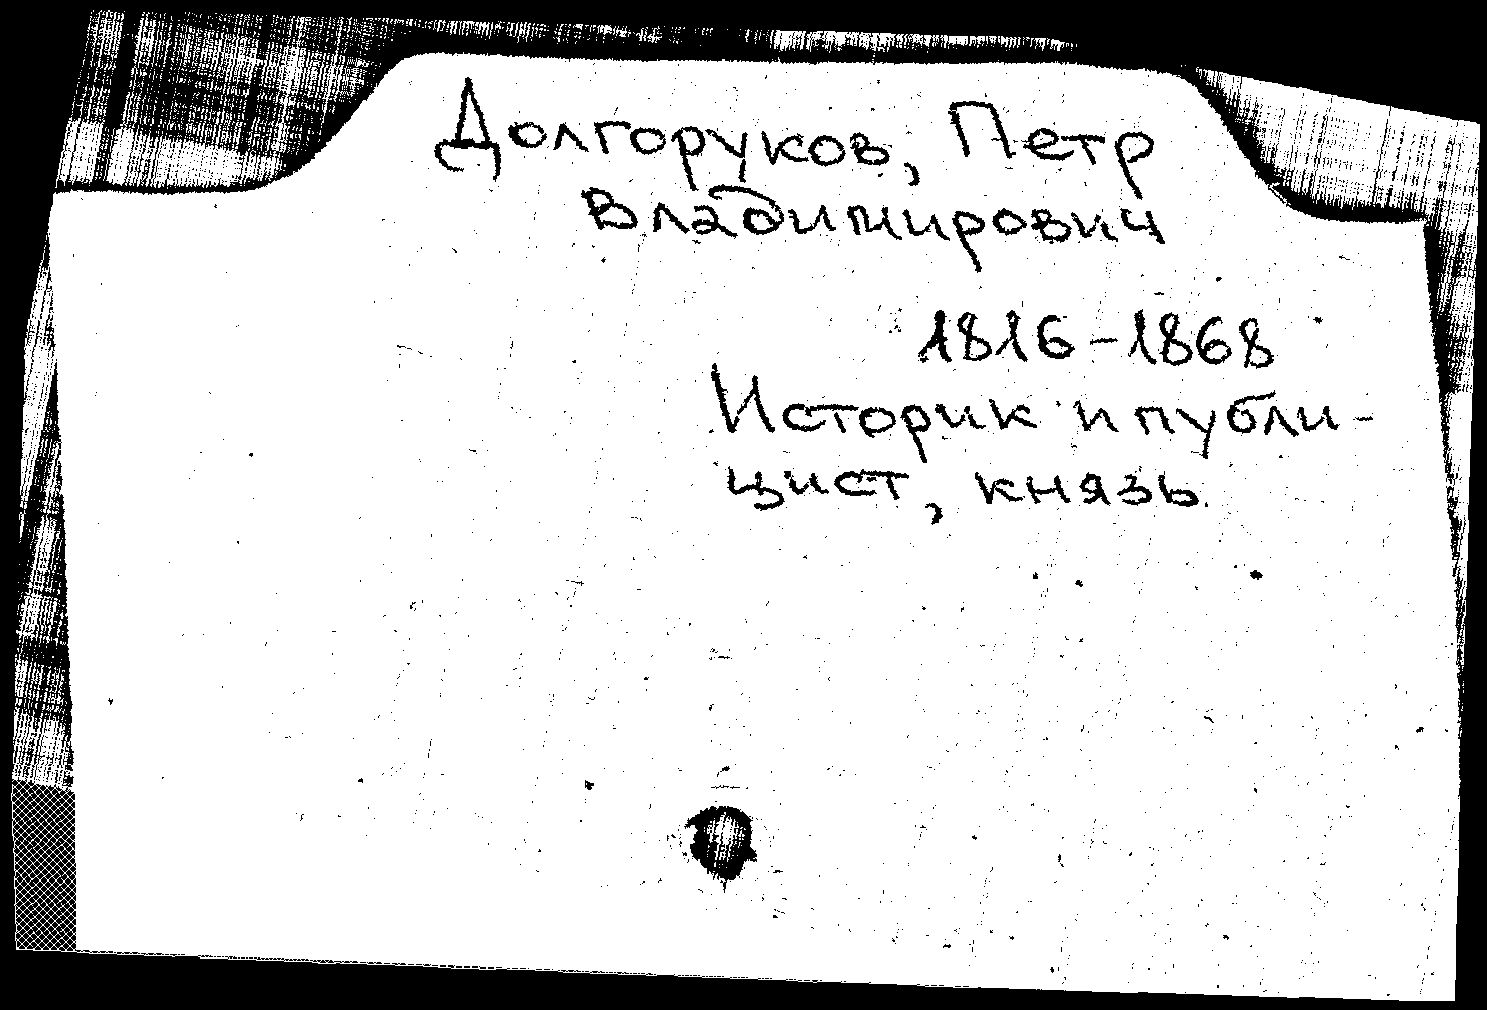 Долгоруков, Петр
Владимирович
1816-1868
Историк и публи-
цист, князь.